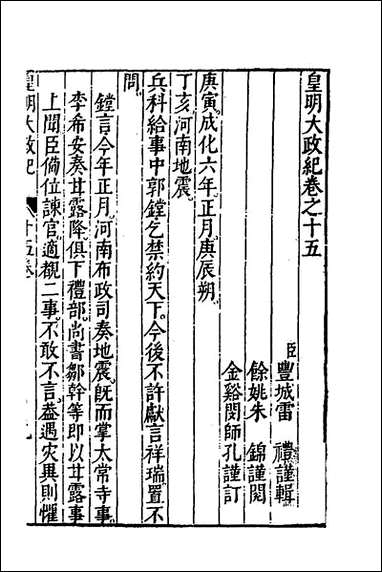 皇明大政紀卷之十五
臣豐城雷 禮謹輯
餘姚朱 錦謹閱
金谿閔師孔謹訂
庚寅成化六年。正月。庚辰朔。
丁亥。河南地震。
兵科給事中郭鏜乞禁約天下。今後不許獻言祥瑞。置不
問。
鏜言今年正月。河南布政司奏地震。旣而掌太常寺事。
李希安奏甘露降。俱下禮部。尚書鄒幹等即以甘露事
上聞。臣備位諫官。適覩二事。不敢不言。葢遇灾異則懼
皇明大政紀 十五卷